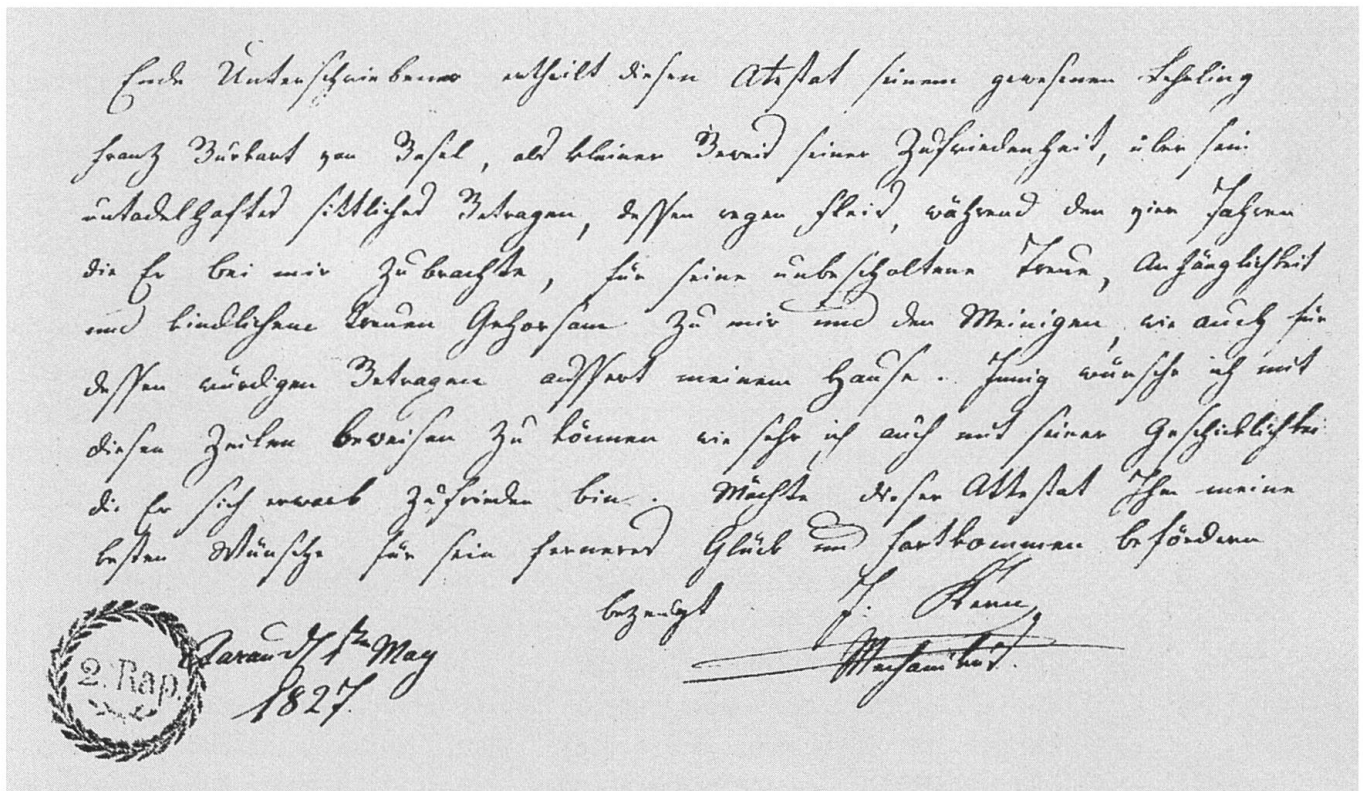 Ends Unterschriebener ertheilt diesen Atestat seinem gewesenen Lehrling
Frantz Burkart von Basel, als kleiner Beweis seiner Zufriedenheit, über sein
untadelhaftes sittliches Betragen, dessen regen Fleis, während den vier Jahren
die Er bei mir zubrachte, für seine unbescholtene Treue, Anhänglichkeit
und kindlichem treuen Gehorsam zu mir und den Meinigen, wie auch für
dessen würdigen Betragen aussert meinem Hause. Innig wünsche ich mit
diesen Zeilen beweisen zu können wie sehr ich auch mit seiner Geschicklichkei
die Er sich erwarb zufrieden bin. Möchte dieser Attestat Ihm meine
besten Wünsche für sein ferneres Glück und Fortkommen befördern
bezeugt J. Kern
Mechanikus.
Aarau d 1ten May
1827
2. Rap.